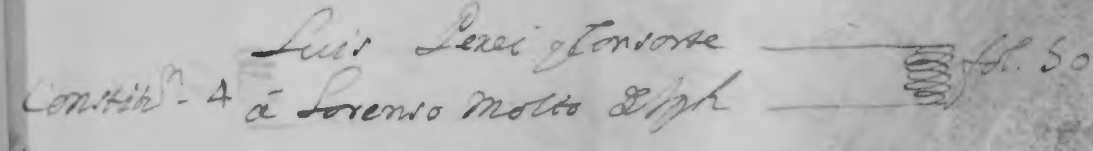 Luis Perez y Consorte
Constit.ⁿ - 4 â Lorenso Molto de Jph fol. 50